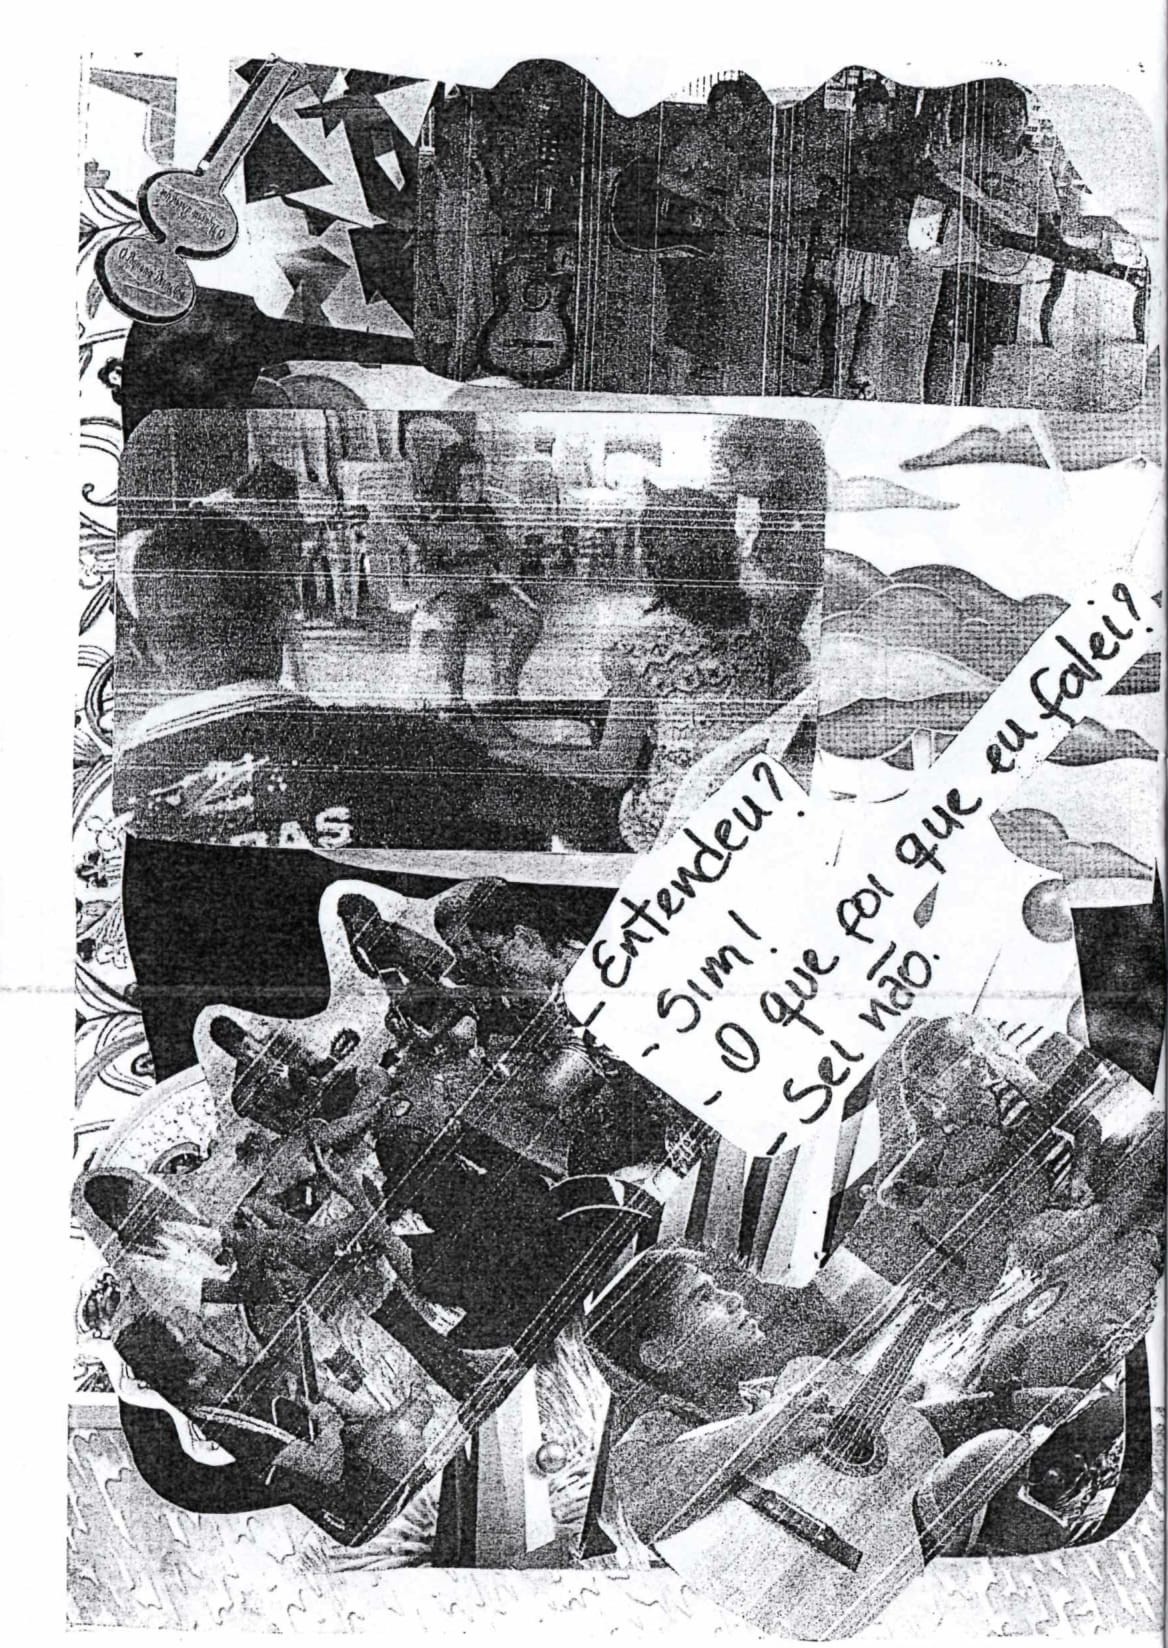 - Entendeu?
- Sim!
- O que foi que eu falei?
- Sei não.